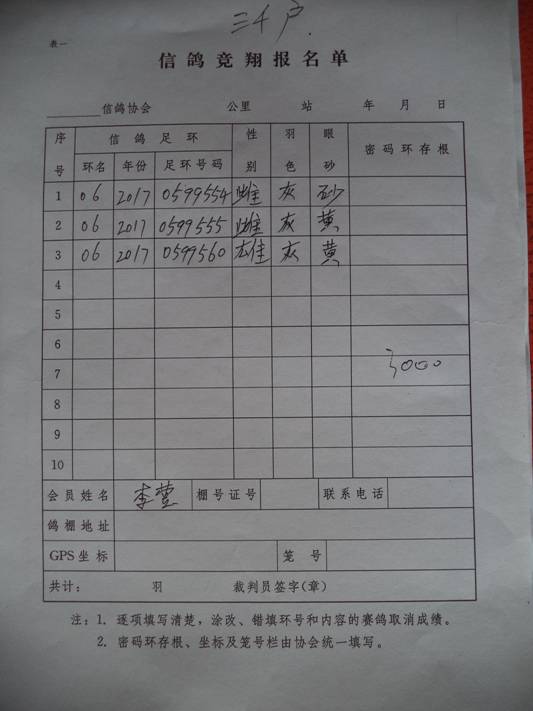 三千户
表一
信鸽竞翔报名单
信鸽协会 公里 站 年 月 日
序号 信鸽足环 性别 羽色 眼砂 密码环存根
环名 年份 足环号码
1 06 2017 0599554 雌 灰 砂
2 06 2017 0599555 雌 灰 黄
3 06 2017 0599560 雄 灰 黄
4
5
6
7 3000
8
9
10
会员姓名 李莹 棚号证号 联系电话
鸽棚地址
GPS坐标 笼号
共计: 羽 裁判员签字(章)
注:1. 逐项填写清楚,涂改、错填环号和内容的赛鸽取消成绩。
2. 密码环存根、坐标及笼号栏由协会统一填写。